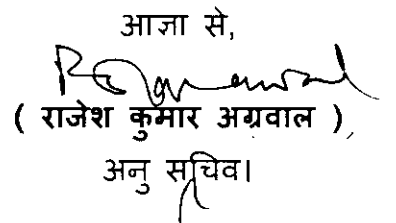 आज्ञा से,
( राजेश कुमार अग्रवाल )
अनु सचिव।